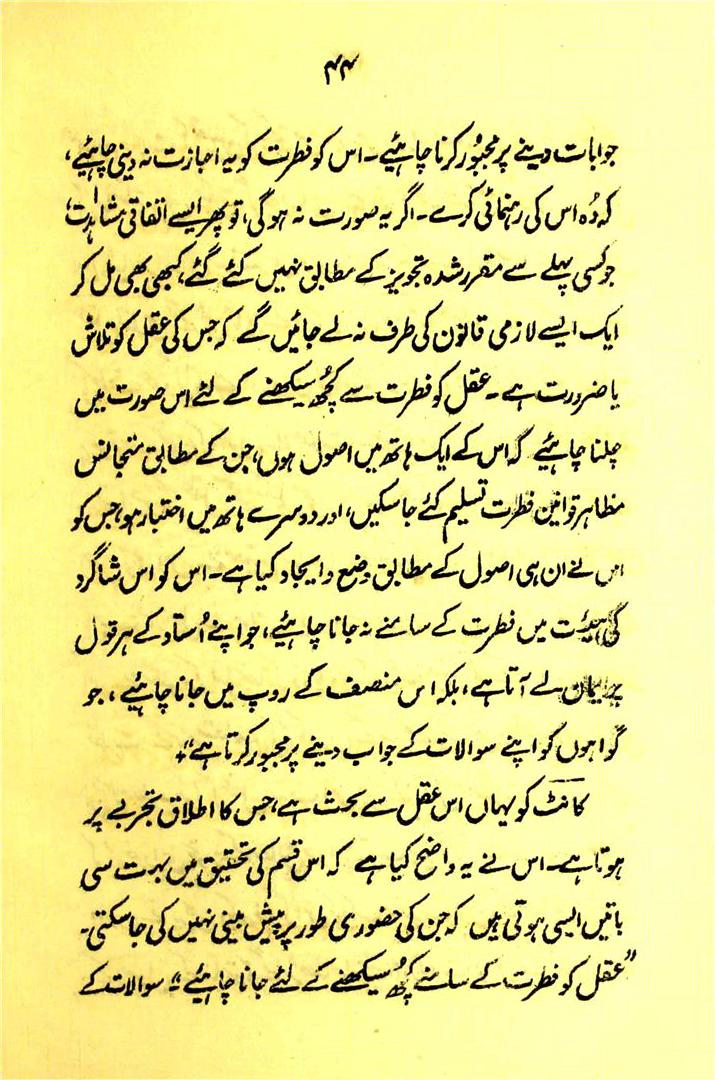 ۴۴
جوابات دینے پر مجبُور کرنا چاہئیے۔ اس کو فطرت کو یہ اجازت نہ دینی چاہئیے،
کہ وُہ اس کی رہنمائی کرے۔ اگر یہ صورت نہ ہوگی، تو پھر ایسے اتفاقی مشاہدات،
جو کسی پہلے سے مقرر شدہ تجویز کے مطابق نہیں کئے گئے، کبھی بھی مل کر
ایک ایسے لازمی قانون کی طرف نہ لے جائیں گے کہ جس کی عقل کو تلاش
یا ضرورت ہے۔ عقل کو فطرت سے کچُھ سیکھنے کے لئے اس صورت میں
چلنا چاہئیے کہ اس کے ایک ہاتھ میں اصول ہوں، جن کے مطابق متجانس
مظاہر قوانین فطرت تسلیم کئے جا سکیں، اور دوسرے ہاتھ میں اختبار ہو، جس کو
اس نے ان ہی اصول کے مطابق وضع و ایجاد کیا ہے۔ اس کو اس شاگرد
کی ہیئت میں فطرت کے سامنے نہ جانا چاہئیے، جو اپنے اُستاد کے ہر قول
پر ایمان لے آتا ہے، بلکہ اس منصف کے روپ میں جانا چاہئیے، جو
گواہوں کو اپنے سوالات کے جواب دینے پر مجبور کرتا ہے"۔
کانٹ کو یہاں اس عقل سے بحث ہے، جس کا اطلاق تجربے پر
ہوتا ہے۔ اس نے یہ واضح کیا ہے کہ اس قسم کی تحقیق میں بہت سی
باتیں ایسی ہوتی ہیں کہ جن کی حضوری طور پر پیش بینی نہیں کی جا سکتی۔
"عقل کو فطرت کے سامنے کچُھ سیکھنے کے لئے جانا چاہئیے"۔ سوالات کے